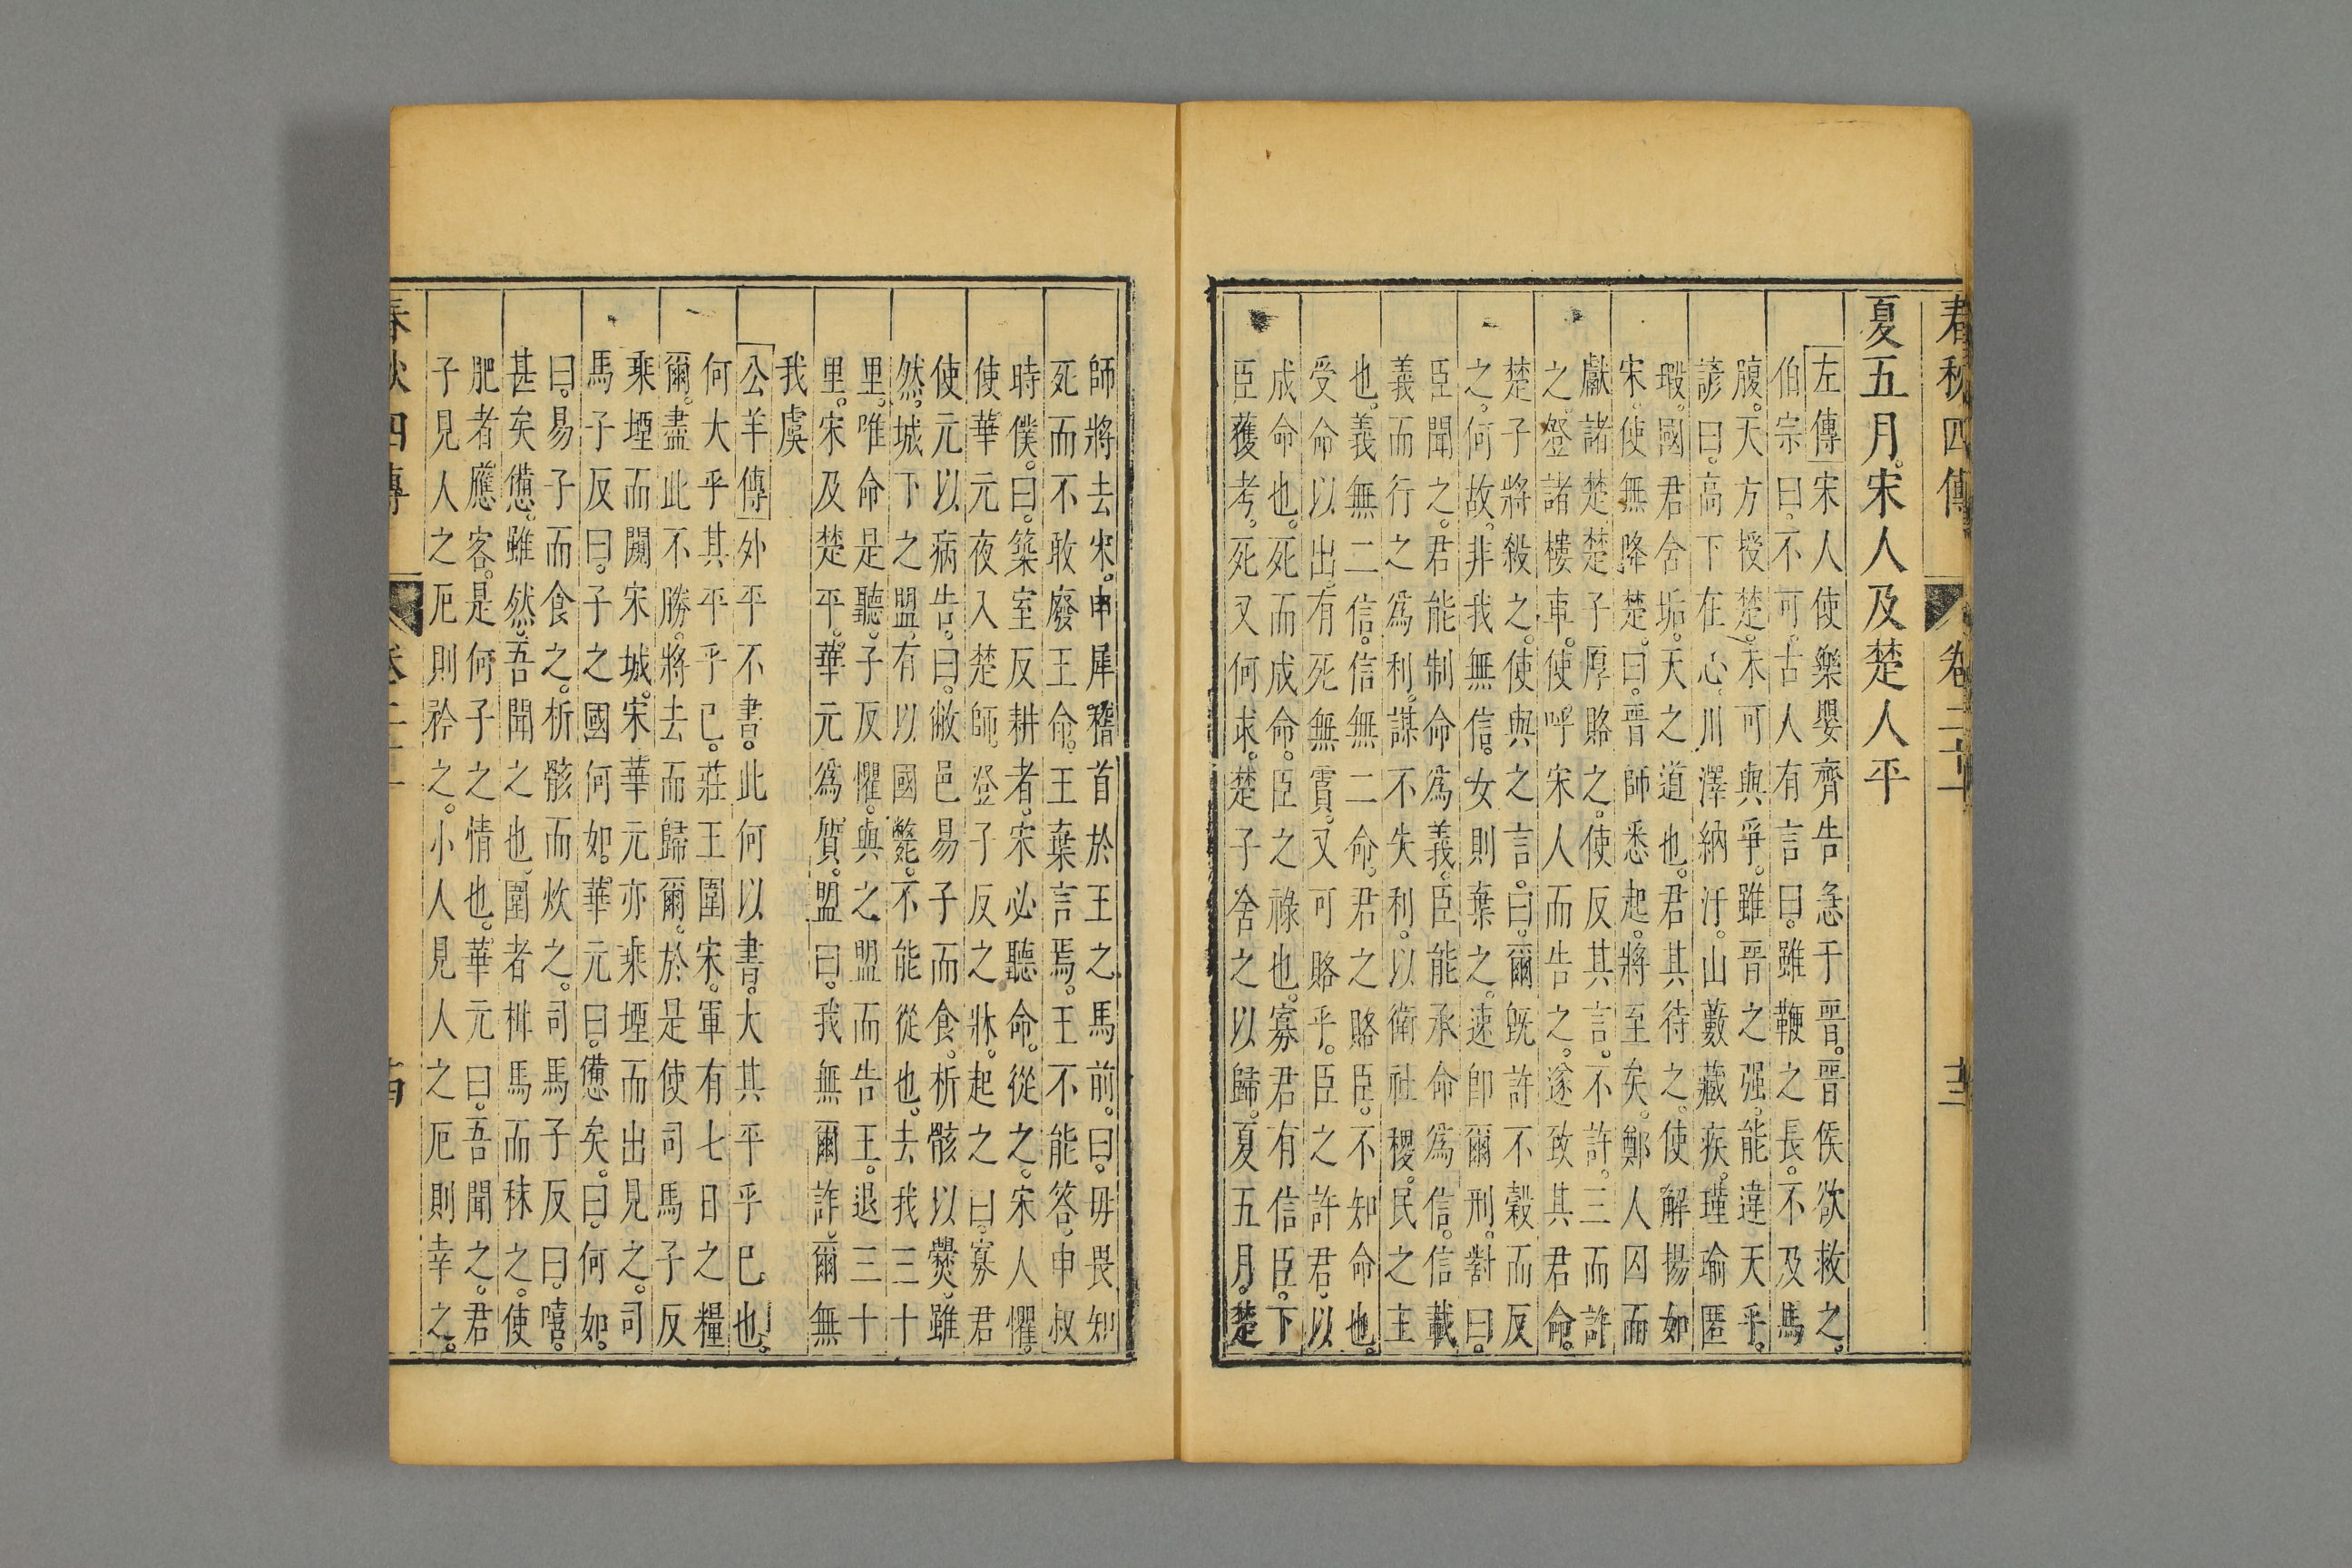 春秋四傳 卷二十一 十三
夏五月。宋人及楚人平
左傳宋人使樂嬰齊告急于晉。晉侯欲救之。
伯宗曰。不可。古人有言曰。雖鞭之長。不及馬
腹。天方授楚。未可與爭。雖晉之强。能違天乎。
諺曰。高下在心。川澤納汙。山藪藏疾。瑾瑜匿
瑕。國君含垢。天之道也。君其待之。使解揚如
宋。使無降楚。曰。晉師悉起。將至矣。鄭人囚而
獻諸楚。楚子厚賂之。使反其言。不許。三而許
之。登諸樓車。使呼宋人而告之。遂致其君命。
楚子將殺之。使與之言。曰。爾旣許不穀而反
之。何故。非我無信。女則棄之。速卽爾刑。對曰。
臣聞之。君能制命爲義。臣能承命爲信。信載
義而行之爲利。謀不失利。以衛社稷。民之主
也。義無二信。信無二命。君之賂臣。不知命也。
受命以出。有死無霣。又可賂乎。臣之許君。以
成命也。死而成命。臣之祿也。寡君有信臣。下
臣獲考。死又何求。楚子舍之以歸。夏五月。楚
師將去宋。申犀稽首於王之馬前。曰。毋畏知
死而不敢廢王命。王棄言焉。王不能答。申叔
時僕。曰。築室反耕者。宋必聽命。從之。宋人懼。
使華元夜入楚師。登子反之牀。起之曰。寡君
使元以病告。曰。敝邑易子而食。析骸以爨。雖
然。城下之盟。有以國斃。不能從也。去我三十
里。唯命是聽。子反懼。與之盟而告王。退三十
里。宋及楚平。華元爲質。盟曰。我無爾詐。爾無
我虞
公羊傳外平不書。此何以書。大其平乎已也。
何大乎其平乎已。莊王圍宋。軍有七日之糧
爾。盡此不勝。將去而歸爾。於是使司馬子反
乘堙而闚宋城。宋華元亦乘堙而出見之。司
馬子反曰。子之國何如。華元曰。憊矣。曰。何如。
曰。易子而食之。析骸而炊之。司馬子反曰。嘻。
甚矣憊。雖然。吾聞之也。圍者柑馬而秣之。使
肥者應客。是何子之情也。華元曰。吾聞之。君
子見人之厄則矜之。小人見人之厄則幸之。
春秋四傳